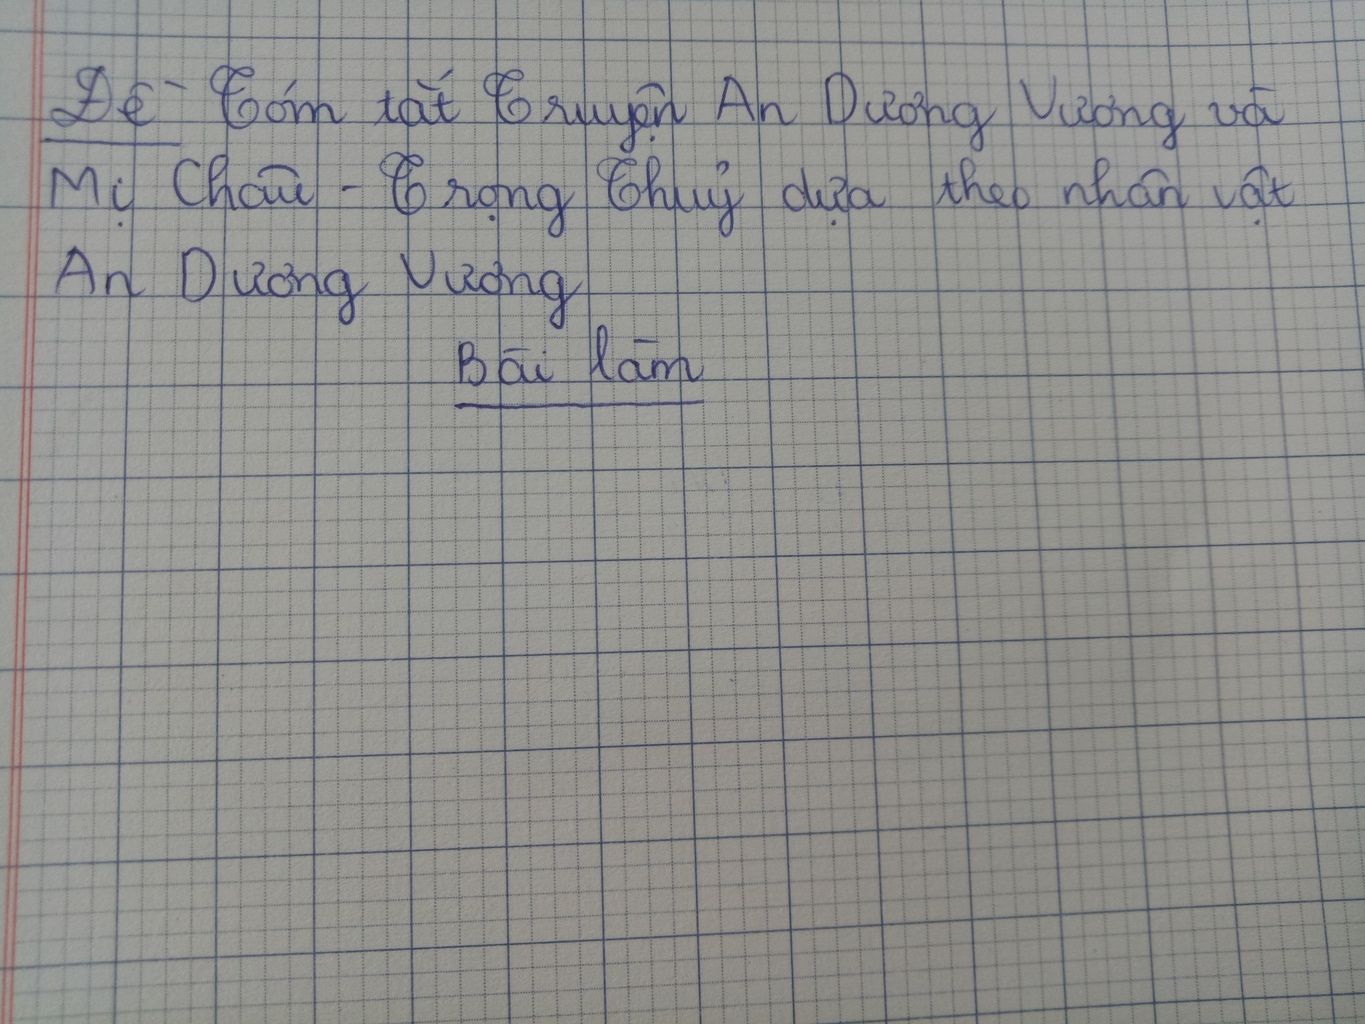 Đề Tóm tắt Truyện An Dương Vương và
Mị Châu - Trọng Thuỷ dựa theo nhân vật
An Dương Vương
Bài làm